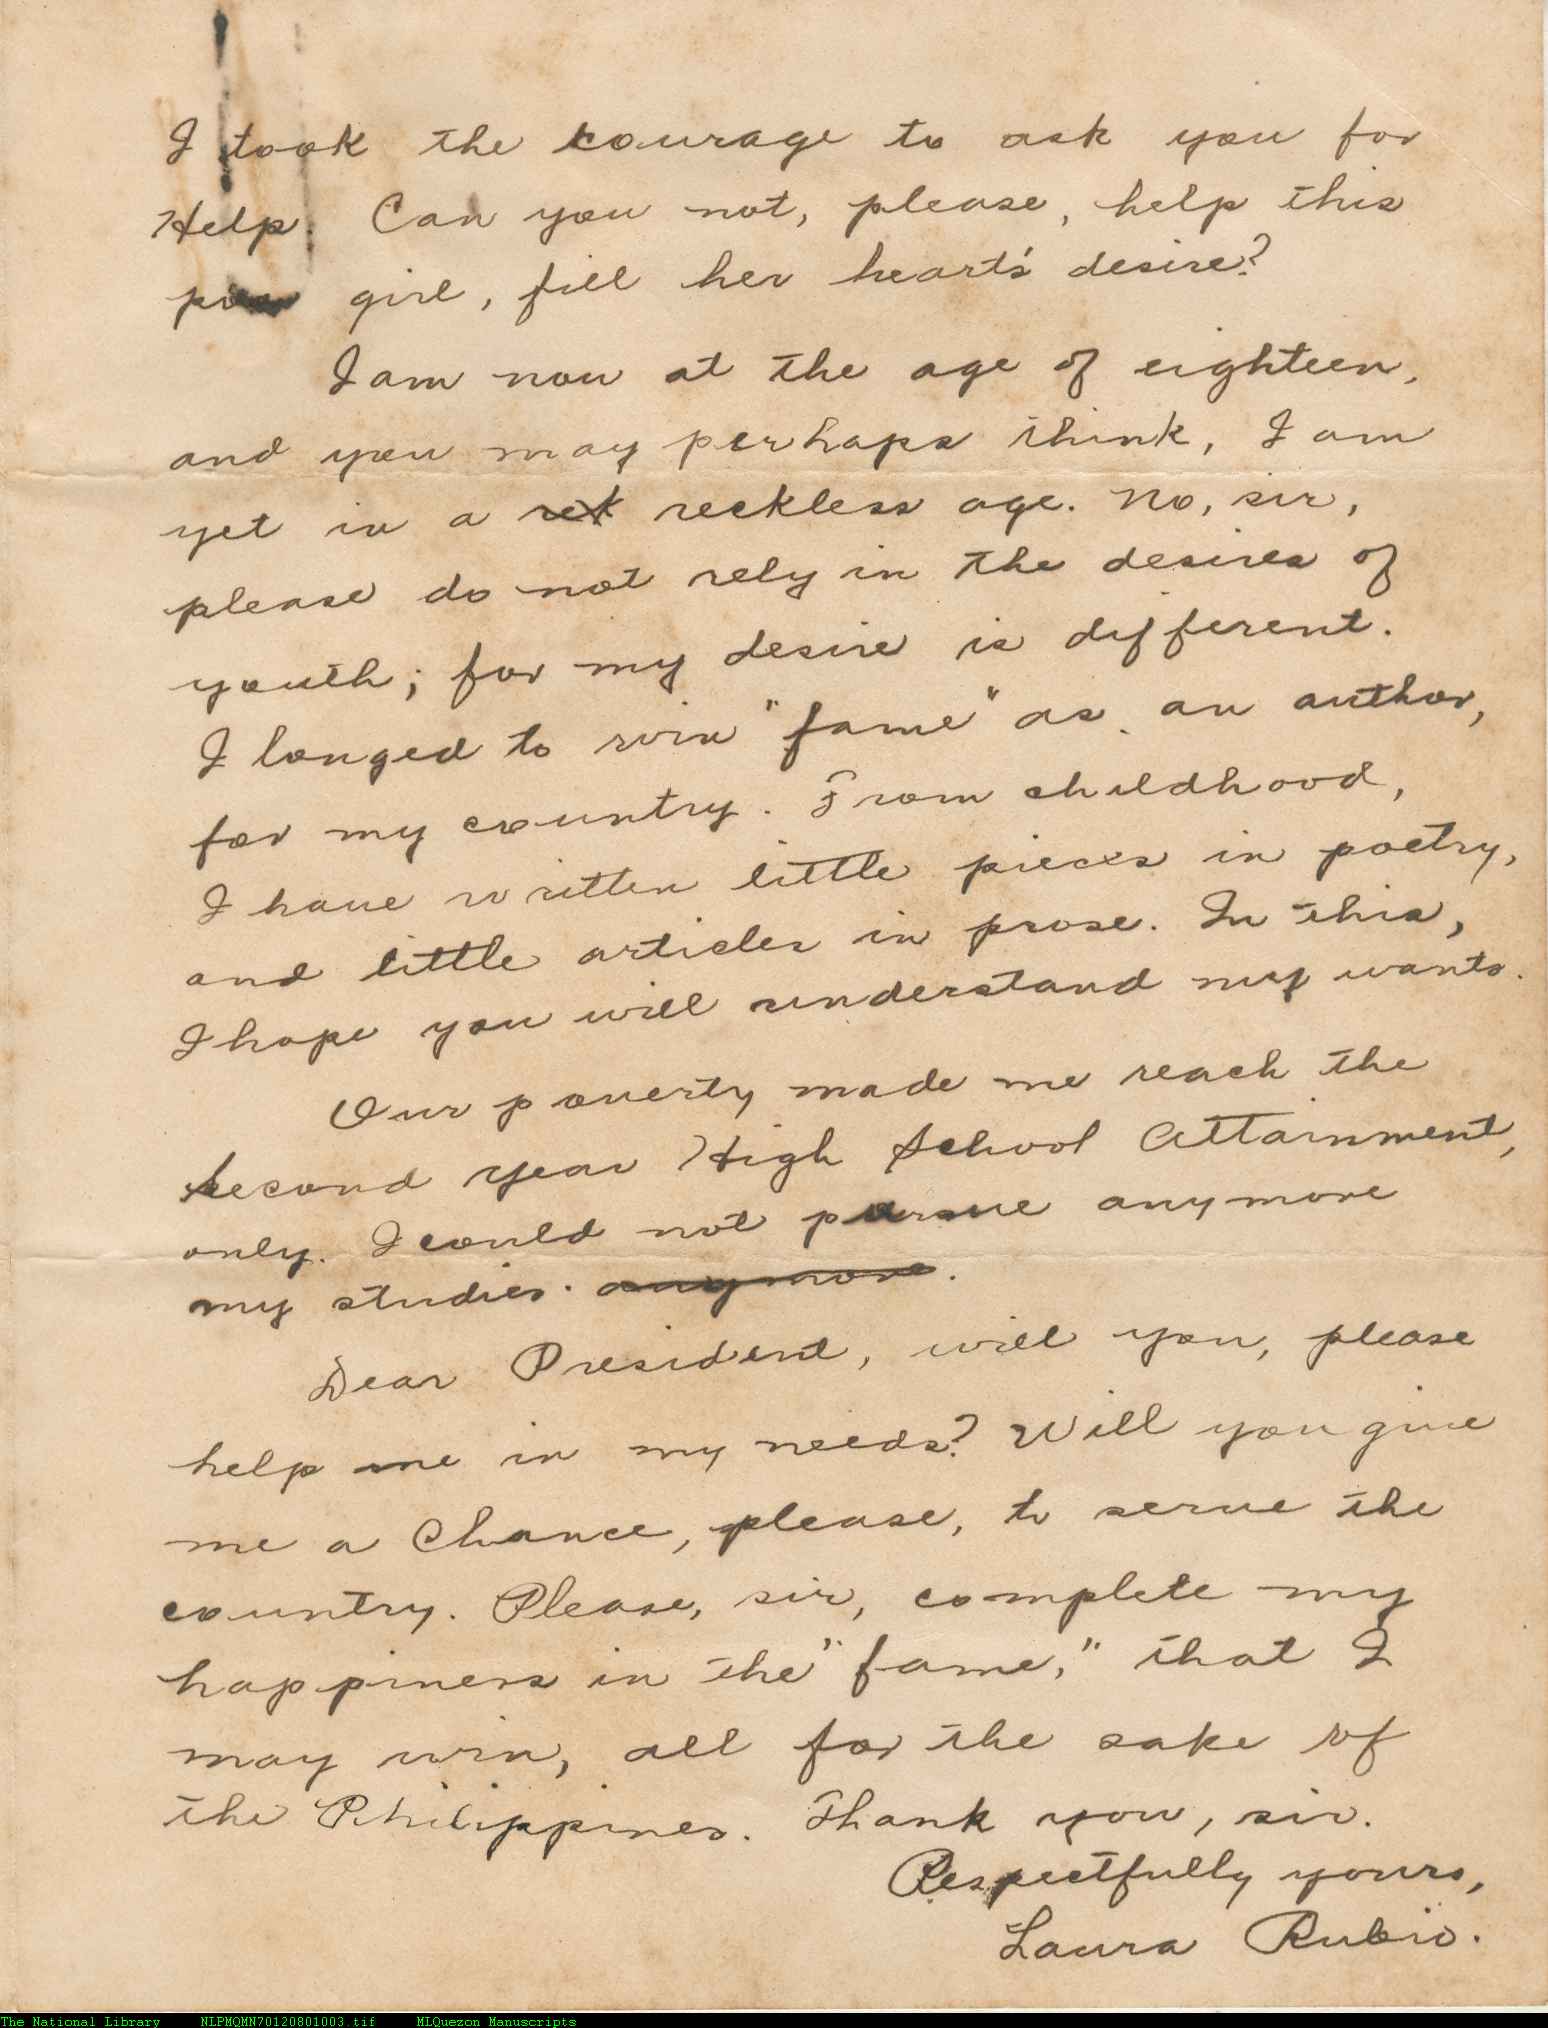 I took the courage to ask you for
Help. Can you not, please, help this
poor girl, fill her heart's desire?
I am now at the age of eighteen,
and you may perhaps think, I am
yet in a rek reckless age. No, sir,
please do not rely in the desires of
youth; for my desire is different.
I longed to win "fame" as an author,
for my country. From childhood,
I have written little pieces in poetry,
and little articles in prose. In this,
I hope you will understand my wants.
Our poverty made me reach the
second year High School Attainment,
only. I could not pursue anymore
my studies. anymore.
Dear President, will you, please
help me in my needs? Will you give
me a Chance, please, to serve the
country. Please, sir, complete my
happiness in the "fame," that I
may win, all for the sake of
the Philippines. Thank you, sir.
Respectfully yours,
Laura Rubio.
The National Library NLPMQMN70120801003.tif MLQuezon Manuscripts